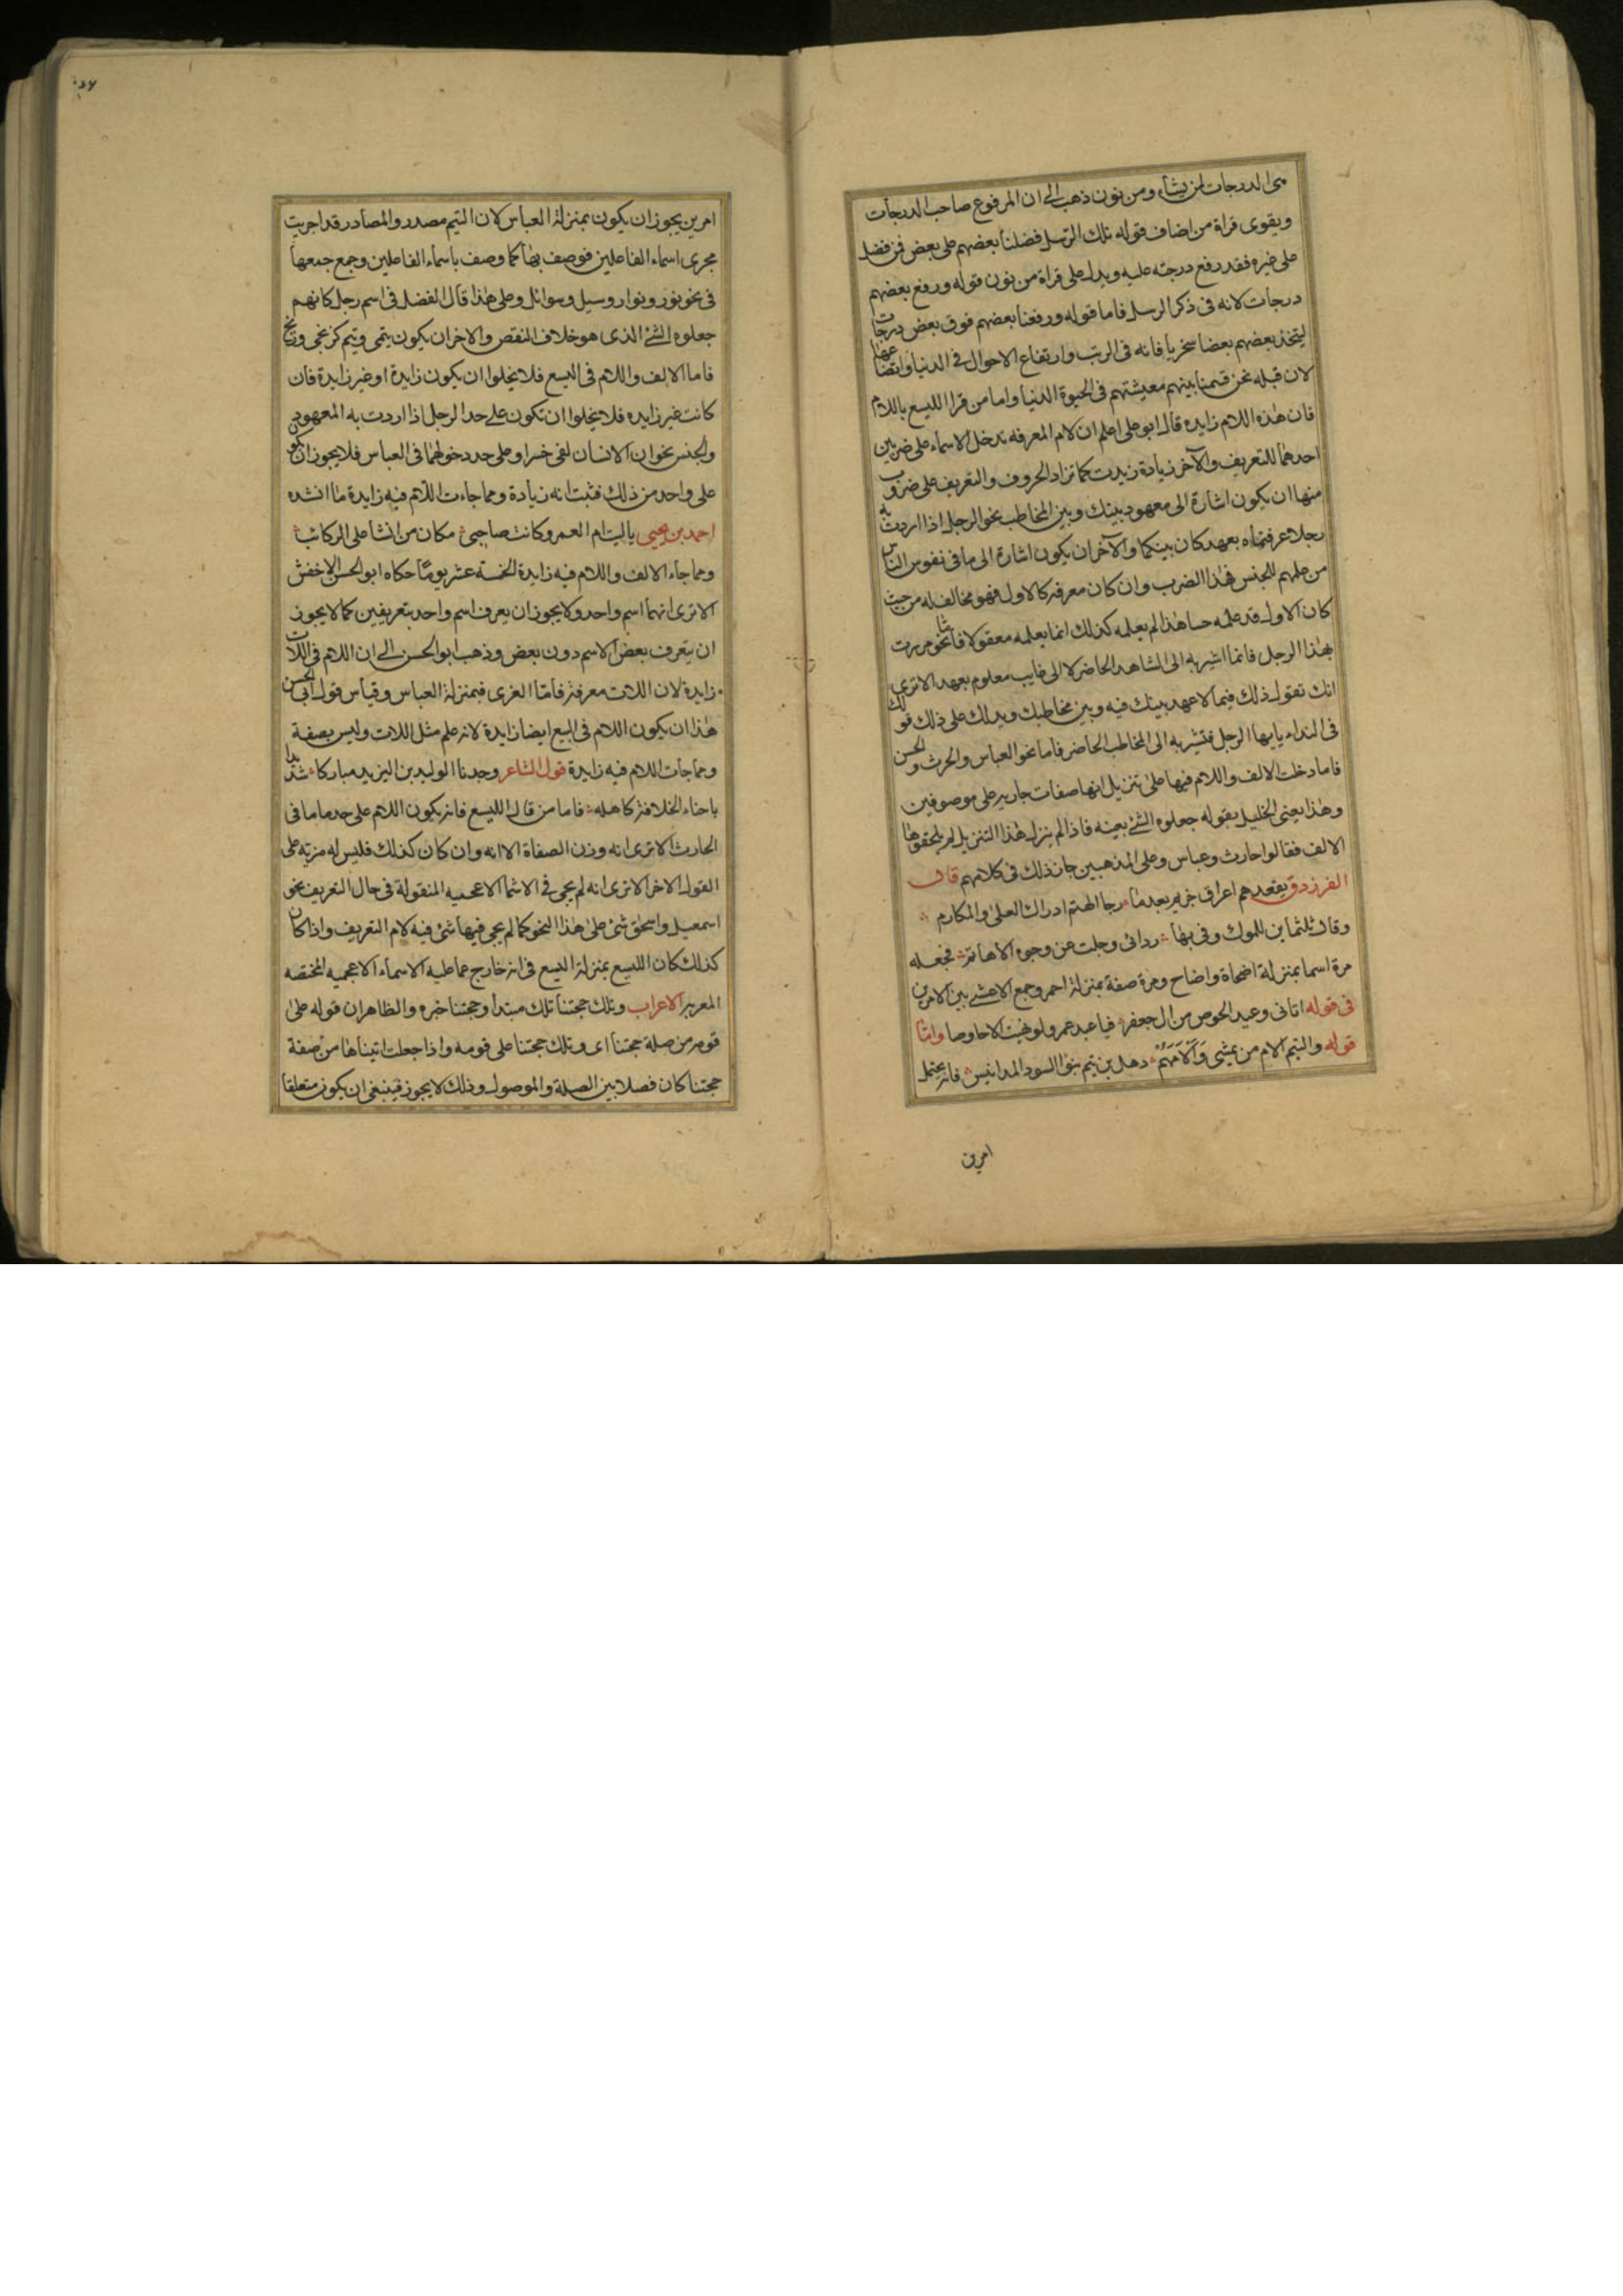 ى الدرجات لمن يشاء ومن نون ذهب الى ان المرفوع صاحب الدرجات
ويقوى قراة من اضاف قوله تلك الرسل فضلنا بعضهم على بعض فمن فضل
على غيره فقد رفع درجته عليه ويدل على قراة من نون قوله ورفع بعضهم
درجات لانه فى ذكر الرسل فاما قوله ورفعنا بعضهم فوق بعض درجات
ليتخذ بعضهم بعضا سخريا فانه فى الرتب وارتفاع الاحوال فى الدنيا واتضاعها
لان قبله نحن قسمنا بينهم معيشتهم فى الحيوة الدنيا واما من قرا الليسع باللام
فان هذه اللام زايدة قال ابو على اعلم ان لام المعرفه تدخل الاسماء على ضربين
احدهما للتعريف والآخر زيادة زيدت كما تزاد الحروف والتعريف على ضروب
منها ان يكون اشارة الى معهود بينك وبين المخاطب نحو الرجل اذا اردت به
رجلا عرفتماه بعهد كان بينكما والآخر ان يكون اشارة الى ما فى نفوس الناس
من علمهم للجنس فهذا الضرب وان كان معرفة كالاول فهو مخالف له من حيث
كان الاول قد علمه حسا هذا لم يعلمه كذلك انما يعلمه معقولا فاما نحو مررت
بهذا الرجل فانما اشير به الى الشاهد الحاضر لا الى غايب معلوم بعهد الا ترى
انك تقول ذلك فيما لا عهد بينك فيه وبين مخاطبك ويدلك على ذلك قولك
فى النداء يا يها الرجل فتشير به الى المخاطب الحاضر فاما نحو العباس والحرث والحسن
فاما دخلت الالف واللام فيها على تنزيل انها صفات جارية على موصوفين
وهذا يعنى الخليل بقوله جعلوه الشئ بعينه فاذا لم ينزل هذا التنزيل لم يلحقوها
الالف فقالوا حارث وعباس وعلى المذهبين جاز ذلك فى كلامهم قال
الفرزدق يقعدهم اعراق حزيم بعد ما رجا الهتم ادراك العلى والمكارم
وقال ثلثماين للملوك وفى بها ردائى وجلت عن وجوه الاهاتم فجعله
مرة اسما بمنزلة اضحاة واضاح ومرة صفة بمنزلة احمر وجمع الاعشى بين الامرين
فى قوله اتانى وعيد الحوص من ال جعفر فيا عبد عمرو لو نهيت الاحاوصا واما
قوله والتيم الام من يمشى وَأَلْأَمَهُمْ ذهل بن تيم بنو السود المدانيس فانه يحتمل
امرين
امرين يجوز ان يكون بمنزلة العباس لان التيم مصدر والمصادر قد اجريت
مجرى اسماء الفاعلين فوصف بها كما وصف باسماء الفاعلين وجمع جمعها
فى نحو نور ونوار وسيل وسوائل وعلى هذا قال الفضل فى اسم رجل كانهم
جعلوه الشئ الذى هو خلاف النقص والاخر ان يكون تيمى وتيم كزنجى وزنج
فاما الالف واللام فى اليسع فلا يخلوا ان يكون زايدة او غير زايدة فان
كانت غير زايده فلا يخلوا ان تكون على حد الرجل اذا اردت به المعهود
والجنس نحو ان الانسان لفى خسر او على حد دخولهما فى العباس فلا يجوز ان يكون
على واحد من ذلك فثبت انه زيادة ومما جاءت اللام فيه زايدة ما انشده
احمد بن يحيى يا ليت ام العمرو كانت صاحبى مكان من انشا على الركائب
ومما جاء الالف واللام فيه زايدة الخمسة عشر يوما حكاه ابو الحسن الاخفش
الا ترى انهما اسم واحد ولا يجوز ان يعرف اسم واحد بتعريفين كما لا يجوز
ان يتعرف بعض الاسم دون بعض وذهب ابو الحسن الى ان اللام فى اللات
زايدة لان اللات معرفة فاما العزى فبمنزلة العباس وقياس قول ابى الحسن
هذا ان يكون اللام فى اليسع ايضا زايدة لانه علم مثل اللات وليس بصفة
ومما جات اللام فيه زايدة قول الشاعر وجدنا الوليد بن اليزيد مباركا شديدا
باحناء الخلافة كاهله فاما من قال الليسع فانه يكون اللام على حد ما ما فى
الحارث الا ترى انه وزن الصفاة الا انه وان كان كذلك فليس له مزية على
القول الاخر الا ترى انه لم يجى فى الاسما الاعجميه المنقولة فى حال التعريف نحو
اسمعيل واسحق شئ على هذا النحو كما لم يجى فيها شئ فيه لام التعريف واذا كان
كذلك كان الليسع بمنزلة اليسع فى انه خارج عما عليه الاسماء الاعجميه المختصه
المعربه الاعراب وتلك حجتنا تلك مبتدأ وحجتنا خبره والظاهر ان قوله على
قومه من صلة حجتنا اى وتلك حجتنا على قومه واذا جعلت اتيناها من صفة
حجتنا كان فصلا بين الصلة والموصول وذلك لا يجوز فينبغى ان يكون متعلقا